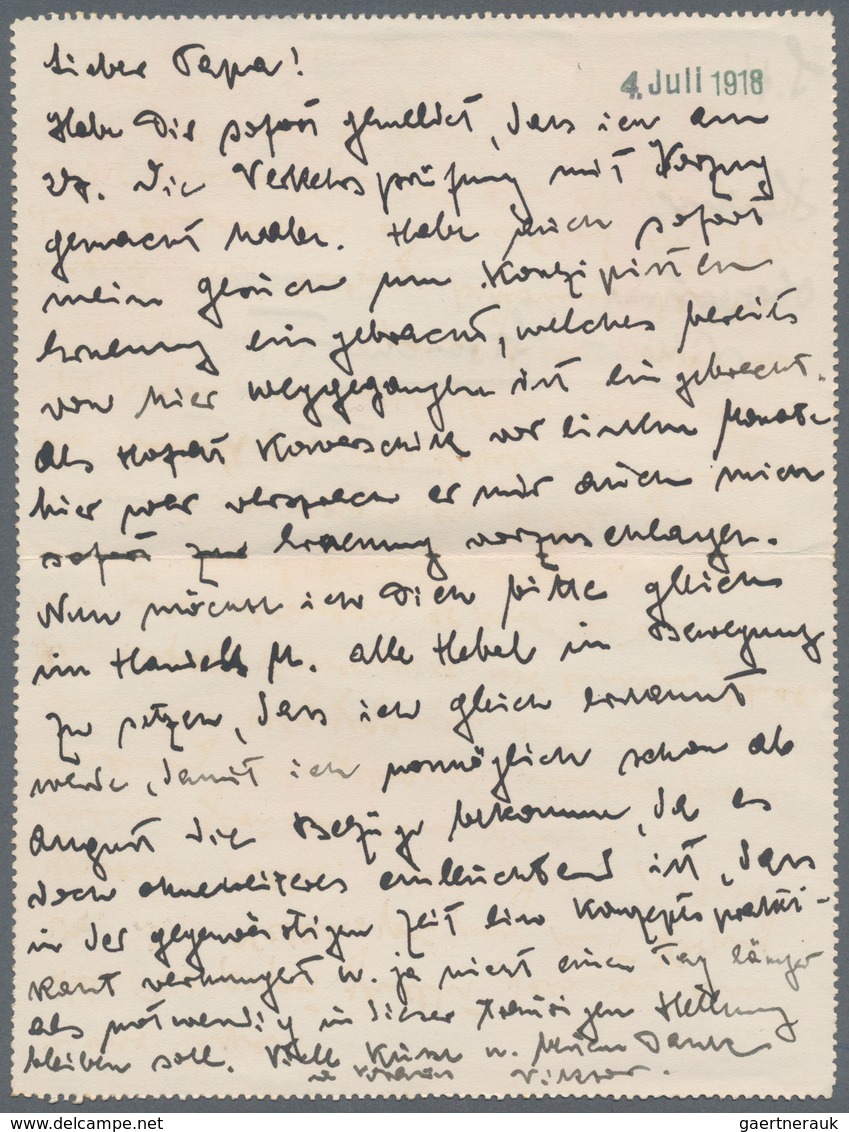 Lieber Papa!
4. Juli 1918
Habe Dir sofort gemeldet, dass ich am
27. die Verkehrsprüfung mit Vorzug
gemacht habe. Habe auch sofort
mein Gesuch um Konzipisten
Ernennung eingebracht, welches bereits
von hier weggegangen ist eingebracht.
Als Hofrat vor einem Monate
hier war versprach er mir auch mich
sofort zur Ernennung vorzuschlagen.
Nun möchte ich Dich bitte gleich
im Handels M. alle Hebel in Bewegung
zu setzen, dass ich gleich ernannt
werde, damit ich womöglich schon ab
August die Bezüge bekomme, da es
doch ohneweiteres einleuchtend ist, dass
in der gegenwärtigen Zeit ein Konzeptsprakti-
kant verhungert u. ja nicht einen Tag länger
als notwendig in dieser traurigen Stellung
bleiben soll. Viele Küsse u. Dank
Viktor.
gaertnerauk